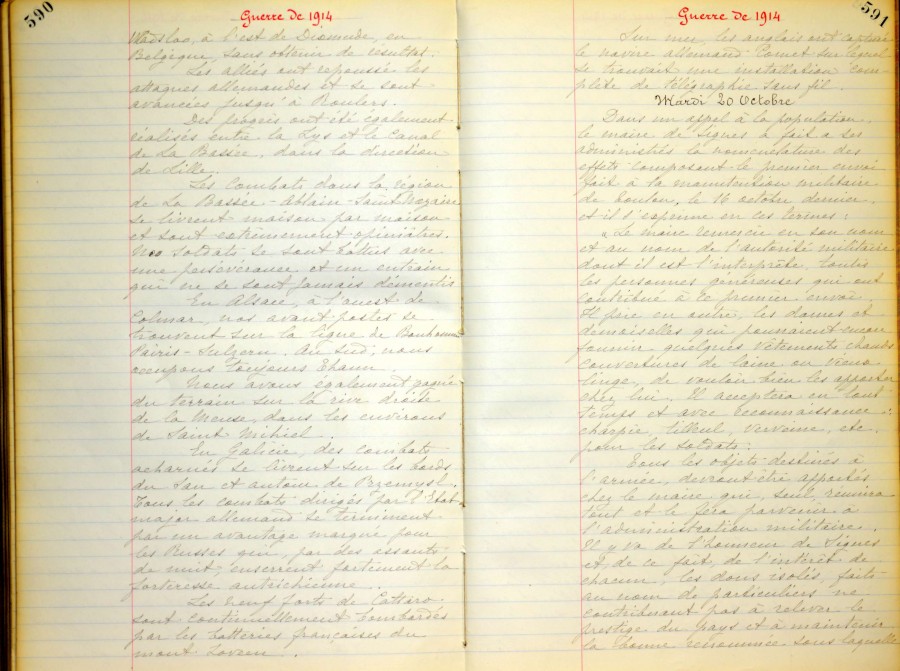 590
Guerre de 1914
Wadsloo, à l'est de Dixmude, en
Belgique, sans obtenir de résultat.
Les alliés ont repoussé les
attaques allemandes et se sont
avancées jusqu'à Roulers.
Des progrès ont été également
réalisés entre la Lys et le canal
de La Bassée, dans la direction
de Lille.
Les combats dans la région
de La Bassée - Ablain-Saint-Nazaire
se livrent maison par maison
et sont extrêmement opiniâtres.
Nos soldats se sont battus avec
une persévérance et un entrain
qui ne se sont jamais démentis.
En Alsace, à l'ouest de
Colmar, nos avant-postes se
trouvent sur la ligne de Bonhomme
Pairis-Sulzern. Au sud, nous
occupons toujours Thann.
Nous avons également gagné
du terrain sur la rive droite
de la Meuse, dans les environs
de Saint-Mihiel.
En Galicie, des combats
acharnés se livrent sur les bords
du San et autour de Przemysl.
Tous les combats dirigés par l'Etat
major allemand se terminent
par un avantage marqué pour
les Russes qui, par des assauts
de nuit, enserrent fortement la
forteresse autrichienne.
Les neuf forts de Cattaro
sont continuellement bombardés
par les batteries françaises du
mont Lovcen.
591
Guerre de 1914
Sur mer, les anglais ont capturé
le navire allemand Comet sur lequel
se trouvait une installation com-
plète de télégraphie sans fil.
Mardi 20 Octobre
Dans un appel à la population,
le maire de Signes a fait a ses
administrés la nomenclature des
effets composant le premier envoi
fait à la manutention militaire
de Toulon, le 16 octobre dernier,
et il s'exprime en ces termes :
"Le maire remercie en son nom
et au nom de l'autorité militaire
dont il est l'interprète, toutes
les personnes généreuses qui ont
contribué à ce premier envoi.
Il prie en outre, les dames et
demoiselles qui pourraient encore
fournir quelques vêtements chauds
couvertures de laine ou vieux
linge, de vouloir bien les apporter
chez lui. Il acceptera en tout
temps et avec reconnaissance :
charpie, tilleul, verveine, etc.
pour les soldats.
Tous les objets destinés à
l'armée, devront être apportés
chez le maire qui, seul, réunira
tout et le fera parvenir à
l'administration militaire.
Il y va de l'honneur de Signes
et, de ce fait, de l'intérêt de
chacun, les dons isolés, faits
au nom de particuliers ne
contribuant pas à relever le
prestige du pays et à maintenir
la bonne renommée sous laquelle